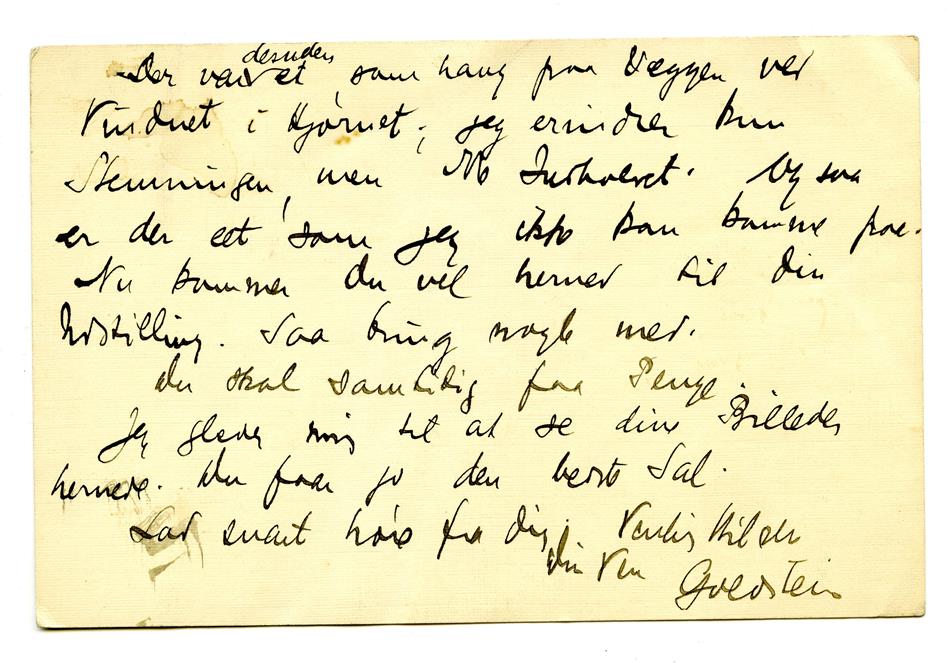 Der var desuden et, som hang paa Væggen ved
Vinduet i Hjørnet; jeg erindrer kun
Stemningen, men ikke Indholdet. Og saa
er der eet som jeg ikke kan komme paa.
Nu kommer du vel herned til din
Udstilling. Saa bring nogle med.
Du skal samtidig faa Penge.
Jeg glæder mig til at se dine Billeder
hernede. Du faar jo den bedste Sal.
Lad snart høre fra dig. Venlig Hilsen
din Ven Goldstein